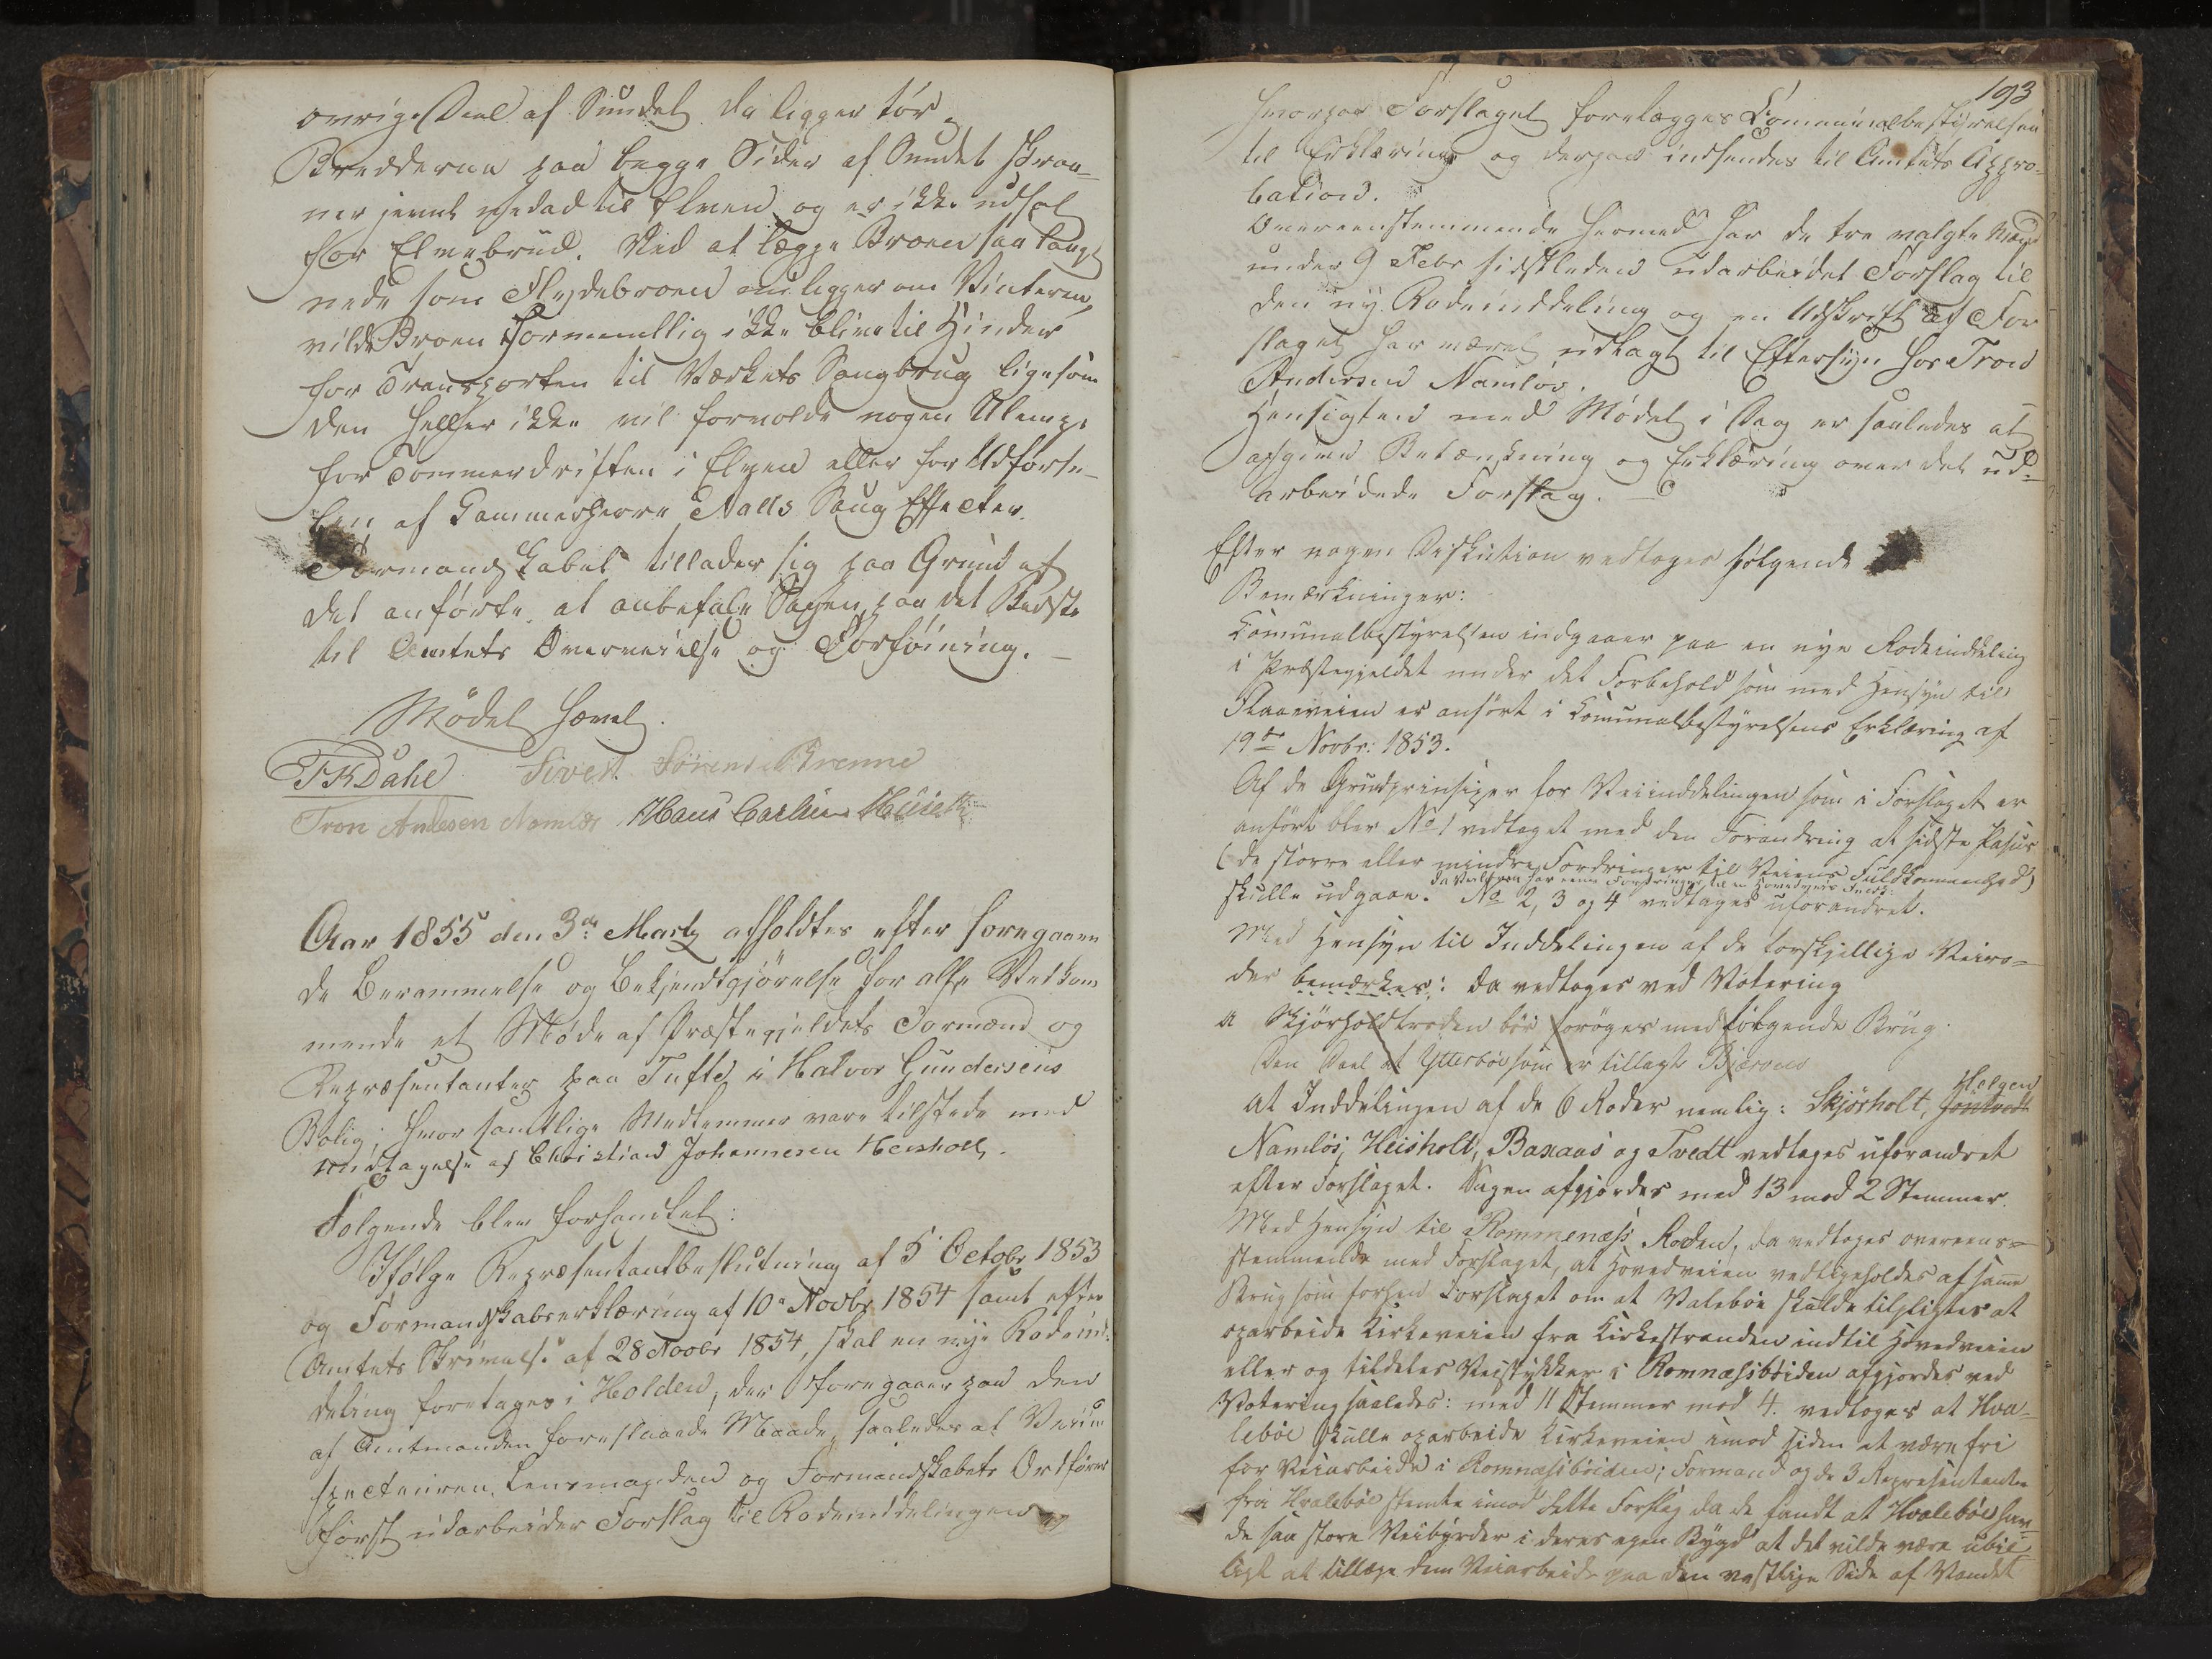 øvrige Deel af Sundet da ligger tør.
Bredderne paa begge Sider af Sundet skraa-
ner jevnt nedad til Elven og er ikke udsat
for Elvebrud. Ved at lægge Broen saa langt
nede som Flydebroen nu ligger om Vinteren,
vilde Broen formeentlig ikke blive til Hinder
for Transporten til Værkets Saugbrug ligesom
den heller ikke vil forvolde nogen Ulempe
for Tømmerdriften i Elven eller for Udførse-
len af Kammerherre Aalls Saug Effecter.
Formandskabet tillader sig paa Grund af
det anførte, at anbefale Sagen paa det Bedste
til Amtets Overveielse og Forføining. –
Mødet hævet.
TKDahl Sivert Sørensen Brenne
Tron Andersen Namløs Hans Carlsen
Aar 1855 den 3de Marts afholdtes efter foregaaen
de Berammelse og Bekjendtgjørelse for alle Vedkom
mende et Møde af Præstegjeldets Formænd og
Repræsentanter paa Tufte i Halvor Gundersens
Bolig; hvor samtlige Medlemmer vare tilstede med
undtagelse af Christian Johannesen Heisholt.
Følgende blev forhandlet:
Ifølge Repræsentantbeslutning af 5 Octobr 1853
og Formandskabserklæring af 10 Novbr 1854 samt efter
Amtets Skrivelse af 28 Novbr 1854, skal en nye Rodeind-
deling foretages i Holden, der foregaaer paa den
af Amtmanden foreslaaede Maade, saaledes at Veiin
specteuren, Lensmanden og Formandskabets Ordfører
først udarbeider Forslag til Rodeinddelingen
193
hvorpaa Forslaget forelægges Communalbestyrelsen
til Erklæring og derpaa indsendes til Amtets Appro-
bation.
Overeenstemmende hermed har de tre valgte Mænd
under 9 Febr sidstleden udarbeidet Forslag til
den ny Rodeinddeling og en Udskrift af For
slaget har været udlagt til Eftersyn hos Tron
Andersen Namløs.
Hensigten med Mødet i Dag er saaledes at
afgive Betænkning og Erklæring over det ud-
arbeidede Forslag. –
Efter nogen Diskution vedtoges følgende
Bemærkninger:
Komunalbestyrelsen indgaaer paa en nye Rodeinddeling
i Præstegjeldet under det Forbehold som med Hensyn til
Flaaveien er anført i Komunalbestyrelsens Erklæring af
19de Novbr: 1853.
Af de Grundprinsiper for Veiinddelingen som i Forslaget er
anført blev No 1 vedtaget med den Forandring at sidste Passus
(de større eller mindre Fordringer til Veiens Fuldkommenhed)
skulle udgaae. No 2, 3 og 4 vedtages uforandret.
Med Hensyn til Inddelingen af de forskjellige Veiro-
der bemærkes: da vedtoges ved Votering
a Skjørholdtroden bør forøges med følgende Brug.
Den Deel af Ytterbøe som er tillagt Bjerven
at Inddelingen af de 6 Roder nemlig: Skjørholt, Jontvedt Helgen
Namløs, Heisholt, Baxaas og Tvedt vedtages uforandret
efter Forslaget. Sagen afgjordes med 13 mod 2 Stemmer.
Med Hensyn til Rommenæss Roden, da vedtoges overeens-
stemmende med Forslaget, at Hovedveien vedligeholdes af samme
Brug som forhen Forslaget om at Valebøe skulde tilpligtes at
oparbeide Kirkeveien fra Kirkestranden indtil Hovedveien
eller og tildeles Veistykker i Romnæssbøiden afgjordes ved
Votering saaledes: med 11 Stemmer mod 4. vedtoges at Hva-
lebøe skulle oparbeide Kirkeveien imod siden at være fri
for Veiarbeide i Romnæssbøiden; Formand og de 3 Representanter
fra Hvalebøe stemte imod dette Forslag da de fandt at Hvalebøe hav-
de saa store Veibyrder i deres egen Bygd at det vilde være ubil-
ligt at tillægge dem Veiarbeide paa den vestlige Side af Vandet